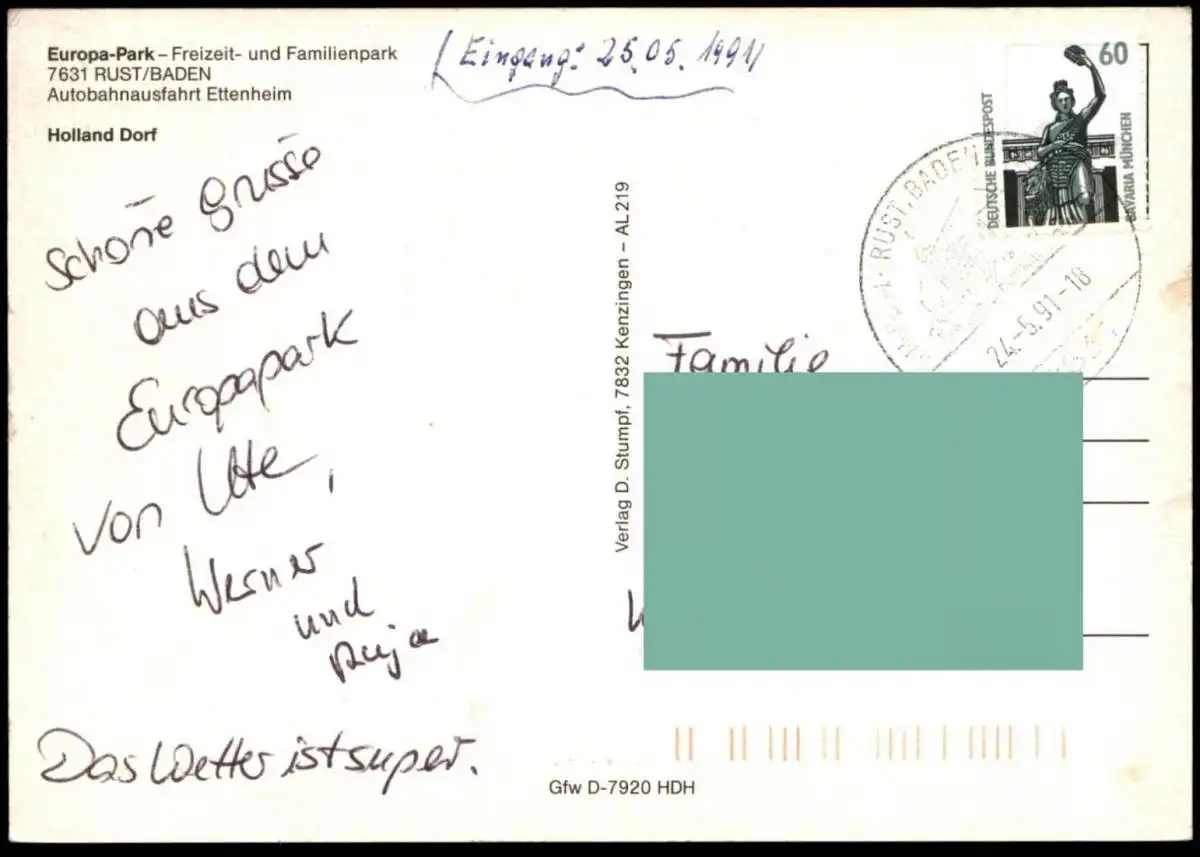 Europa-Park – Freizeit- und Familienpark
7631 RUST/BADEN
Autobahnausfahrt Ettenheim
Holland Dorf
(Eingang: 25.05.1991)
Schöne Grüsse
aus dem
Europapark
von Ute,
Werner
und
Das Wetter ist super.
Verlag D. Stumpf, 7832 Kenzingen – AL 219
Gfw D-7920 HDH
60
DEUTSCHE BUNDESPOST
BAVARIA MÜNCHEN
RUST, BADEN
24.-5.91-18
Familie